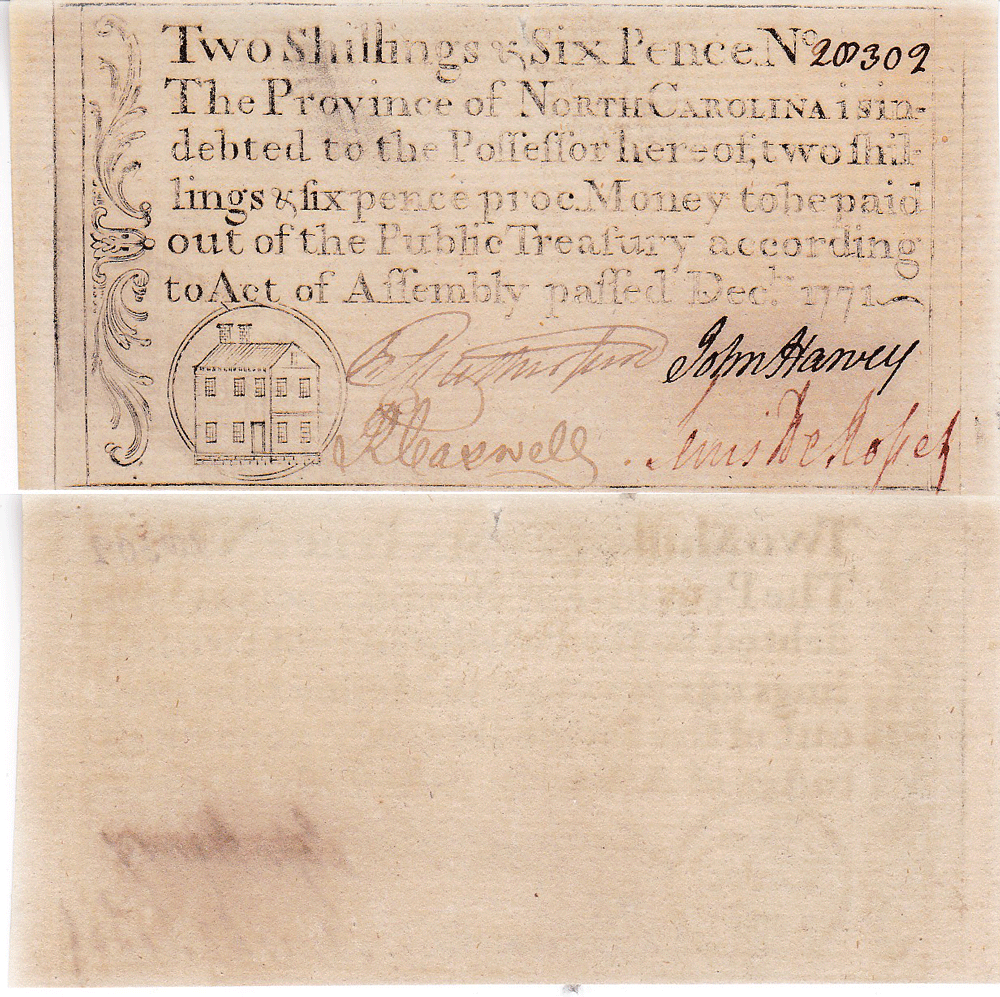 Two Shillings & Six Pence. No 20302
The Province of NORTH CAROLINA is in-
debted to the Poſſeſſor hereof, two ſhil-
lings & ſix pence proc. Money to be paid
out of the Public Treaſury according
to Act of Aſſembly paſſed Decr. 1771
John Harvey
R Caswell Lewis De Rosset